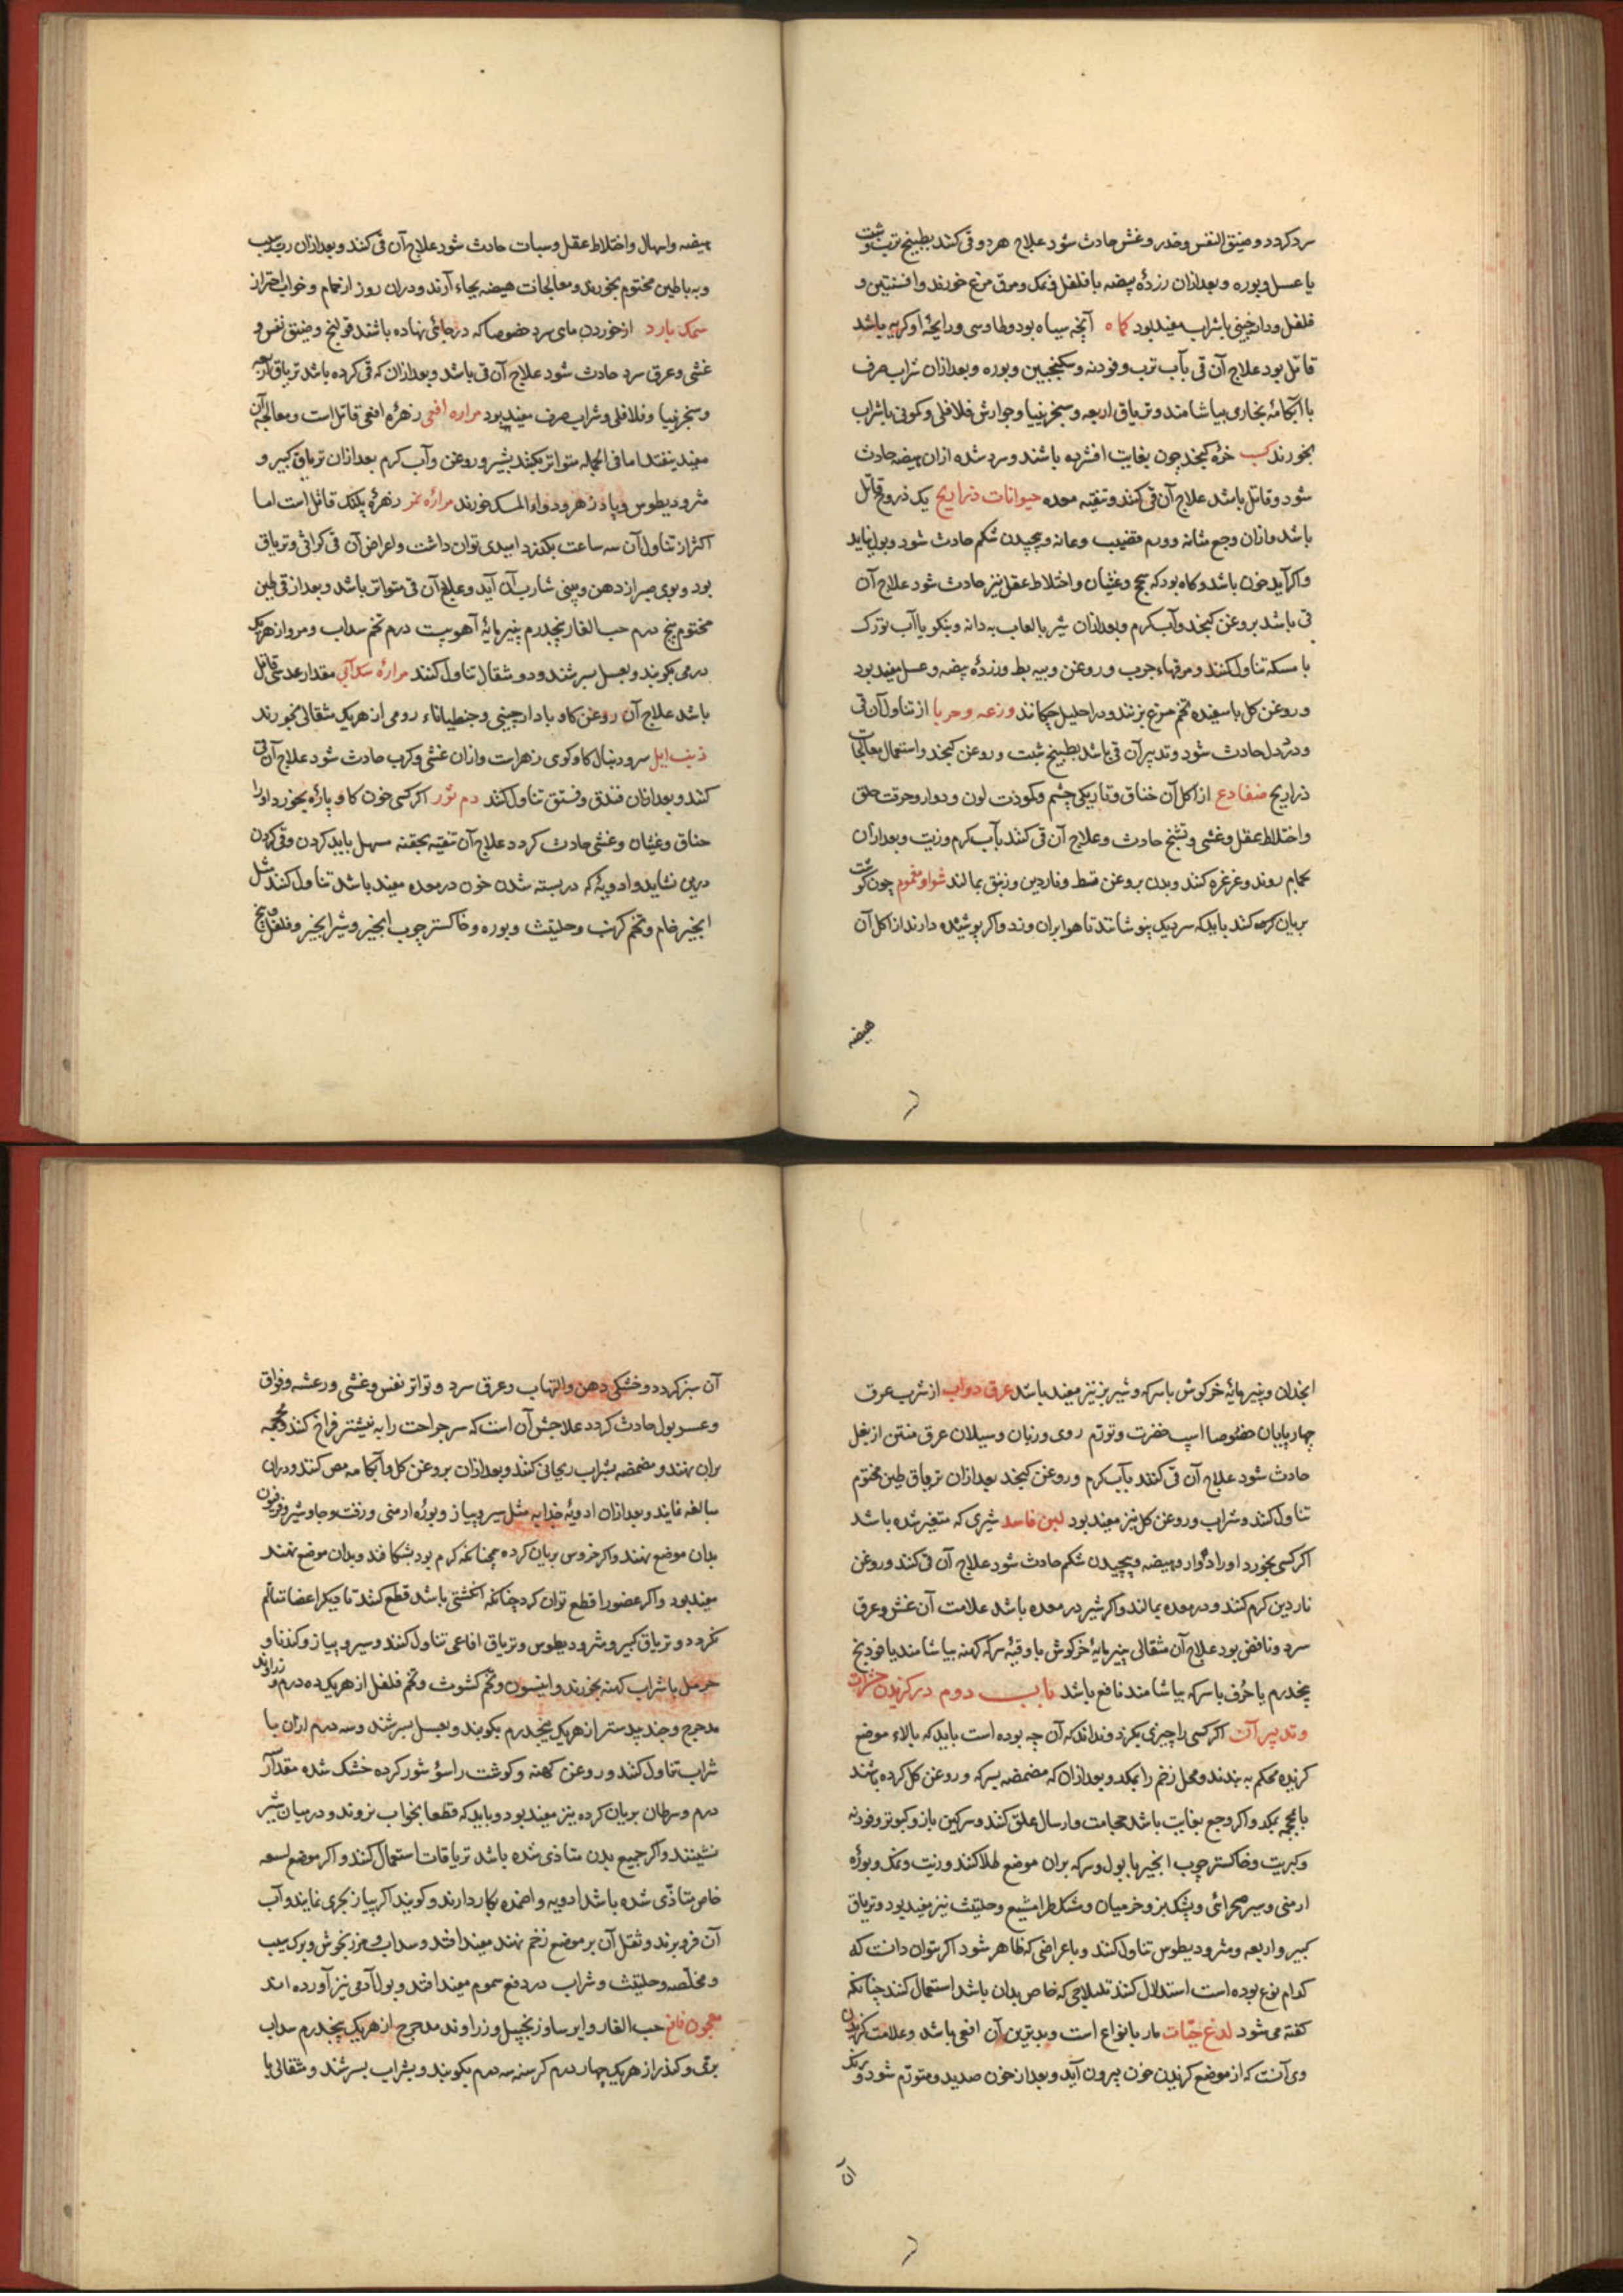 سرد کردد و ضیق النفس و خدر و غشی حادث شود علاج هر دو قی کنند بطبیخ ترب و شبت
یا عسل و بوره و بعد ازان زردهٔ بیضه با فلفل و نمک و مرق مرغ خورند و افسنتین و
فلفل و دارچینی با شراب مفید بود کماه آنچه سیاه بود و طاوسی و رایحهٔ او کریه باشد
قاتل بود علاج آن قی بآب ترب و فودنه و سکنجبین و بوره و بعد ازان شراب صرف
با آبکامهٔ بخاری بیاشامند و تریاق اربعه و سنجرینیا و جوارش فلافلی و کمونی با شراب
بخورند کسب خرهٔ کنجد چون بغایت افشرده باشند و سرد شده ازان هیضه حادث
شود و قاتل باشد علاج آن قی کنند و تنقیه معده حیوانات ذراریح یک ذروح قاتل
باشد و ازان وجع مثانه و ورم قضیب و عانه و پیچیدن شکم حادث شود و بول نیاید
و اکر آید خون باشد و کاه بود که سحج و غثیان و اختلاط عقل نیز حادث شود علاج آن
قی باشد بروغن کنجد و آب کرم و بعد ازان شیر با لعاب به دانه و بنکو یا آب تورک
با مسکه تناول کنند و مرقهاء چرب و روغن و پیه بط و زردهٔ بیضه و عسل مفید بود
و روغن کل با سفیدهٔ تخم مرغ بزنند و در احلیل چکانند وزغه و حربا از تناول آن قی
و درد دل حادث شود و تدبیر آن قی باشد بطبیخ شبت و روغن کنجد و استعمال معالجات
ذراریح ضفادع از اکل آن خناق و تاریکی چشم و کمودت لون و دوار و حرقت حلق
و اختلاط عقل و غشی و تشنج حادث و علاج آن قی کنند بآب کرم و زیت و بعد ازان
بحمام روند و غرغره کنند و بدن بروغن قسط و ناردین و زنبق بمالند شواو مغموم چون کوشت
بریان کرده کنند باید که سر دیک بپوشانند تا هوا بران وزد و اکر پوشیده دارند از اکل آن
هیضه
هیضه و اسهال و اختلاط عقل و سبات حادث شود علاج آن قی کنند و بعد ازان رب سیب
و به با طین مختوم بخورند و معالجات هیضه بجاء آرند و دران روز از حمام و خواب احتراز
سمک بارد از خوردن ماهی سرد خصوصا که در جائی نهاده باشند قولنج و ضیق نفس و
غشی و عرق سرد حادث شود علاج آن قی باشد و بعد ازان که قی کرده باشد تریاق اربعه
و سنجرنیا و فلافلی و شراب صرف مفید بود مراره افعی زهرهٔ افعی قاتل است و معالجهٔ آن
مفید نیفتد اما فی الجمله متواتر بکنند بشیر و روغن و آب کرم بعد ازان تریاق کبیر و
مثرودیطوس و پادزهر و دواء المسک خورند مرارهٔ نمر زهرهٔ پلنک قاتل است اما
اکثر از تناول آن سه ساعت بکذرد امیدی توان داشت و اعراض آن قی کراثی و تریاق
بود و بوی صبر از دهن و بینی شارب آن آید و علاج آن قی متواتر باشد و بعد از قی طین
مختوم پنج درم حب الغار پنجدرم پنیرمایهٔ آهو بیست درم تخم سداب و مر و از هر یک
درمی بکوبند و بعسل بسرشند و دو مثقال تناول کنند مرارهٔ سک آبی مقدار عدسی قاتل
باشد علاج آن روغن کاو با دارچینی و جنطیاناء رومی از هر یک مثقالی بخورند
ذنب ایل سر دنبال کاو کوی زهر است و ازان غشی و کرب حادث شود علاج آن قی
کنند و بعد ازان فندق و فستق تناول کنند دم ثور اکر کسی خون کاو پارهٔ بخورد او را
خناق و غثیان و غشی حادث کردد علاج آن تنقیه بحقنه سهل باید کردن و قی کردن
درین نشاید و ادویهٔ که در بسته شدن خون در معده مفید باشد تناول کنند مثل
انجیر خام و تخم کرنب و حلتیث و بوره و خاکستر چوب انجیر و شیر انجیر و فلفل و بیخ
انجدان و پنیرمایهٔ خرکوش با سرکه و شیر بز نیز مفید باشد عرق دواب از شرب عرق
چهارپایان خصوصا اسپ خضرت و تورّم روی و زنان و سیلان عرق منتن از بغل
حادث شود علاج آن قی کنند بآب کرم و روغن کنجد بعد ازان تریاق طین مختوم
تناول کنند و شراب و روغن کل نیز مفید بود لبن فاسد شیری که متغیر شده باشد
اکر کسی بخورد او را دوار و هیضه و پیچیدن شکم حادث شود علاج آن قی کنند و روغن
ناردین کرم کنند و در معده بمالند و اکر شیر در معده باشد علامت آن غشی و عرق
سرد و نافض بود علاج آن مثقالی پنیرمایهٔ خرکوش با وقیهٔ سرکه کهنه بیاشامند یا فودنج
پنجدرم یا حُرف با سرکه بیاشامند نافع باشد باب دوم در کزیدن حشرات
و تدبیر آن اکر کسی را چیزی بکزد و نداند که آن چه بوده است باید که بالاء موضع
کزیده محکم به بندند و محل زخم را بمکد و بعد ازان که مضمضه بسرکه و روغن کل کرده باشند
یا بمحجمه بمکد و اکر وجع بغایت باشد حجامت و ارسال علق کنند و سرکین باز و کبوتر و فودنه
و کبریت و خاکستر چوب انجیر با بول و سرکه بران موضع طلا کنند و زیت و نمک و بورهٔ
ارمنی و سیر صحرائی و پشک بز و خرمیان و مشکطرامشیع و حلتیث نیز مفید بود و تریاق
کبیر و اربعه و مثرودیطوس تناول کنند و باعراضی که ظاهر شود اکر توان دانست که
کدام نوع بوده است استدلال کنند تا علاجی که خاص بدان باشد استعمال کنند چنانکه
کفته می شود لدغ حیّات مار بانواع است و بدترین آن افعی باشد و علامت کزیدن
وی آنست که از موضع کزیدن خون بیرون آید و بعد از خون صدید و متورّم شود و رنک
آن
آن سبز کردد و خشکی دهن و التهاب و عرق سرد و تواتر نفس و غشی و رعشه و فواق
و عسر بول حادث کردد علاجش آن است که سر جراحت را به نیشتر فراخ کنند و محجمه
بران نهند و مضمضه بشراب ریحانی کنند و بعد ازان بروغن کل و آبکامه مص کنند و دران
مبالغه نمایند و بعد ازان ادویهٔ جذابه مثل سیر و پیاز و بورهٔ ارمنی و زفت و جاوشیر و فرفیون
بدان موضع نهند و اکر خروس بریان کرده همچنانکه کرم بود بشکافند و بدان موضع نهند
مفید بود و اکر عضو را قطع توان کرد چنانکه انکشتی باشد قطع کنند تا دیکر اعضا متالّم
نکردد و تریاق کبیر و مثرودیطوس و تریاق افاعی تناول کنند و سیر و پیاز و کندنا و
حرمل با شراب کهنه بخورند و انیسون و تخم کشوث و تخم فلفل از هر یک ده درم و زراوند
مدحرج و جند بیدستر از هر یک پنجدرم بکوبند و بعسل بسرشند و سه درم ازان با
شراب تناول کنند و روغن کهنه و کوشت راسؤ شور کرده خشک شده مقدار
درم و سرطان بریان کرده نیز مفید بود و باید که قطعا بخواب نروند و در میان شیر
نشینند و اکر جمیع بدن متاذی شده باشد تریاقات استعمال کنند و اکر موضع لسعه
خاص متاذّی شده باشد ادویه و اضمده بکار دارند و کویند اکر پیاز بحری نمایند و آب
آن فرو برند و ثفل آن بر موضع زخم نهند مفید افتد و سداب و مرزنجوش و برک سیب
و مخلّصه و حلتیث و شراب در دفع سموم مفید افتد و بول آدمی نیز آورده اند
معجون نافع حب الغار و ایرسا و زنجبیل و زراوند مدحرج از هر یک پنجدرم سداب
برّی و کندر از هر یک چهار درم کرسنه سه درم بکوبند و بشراب بسرشند و مثقالی با